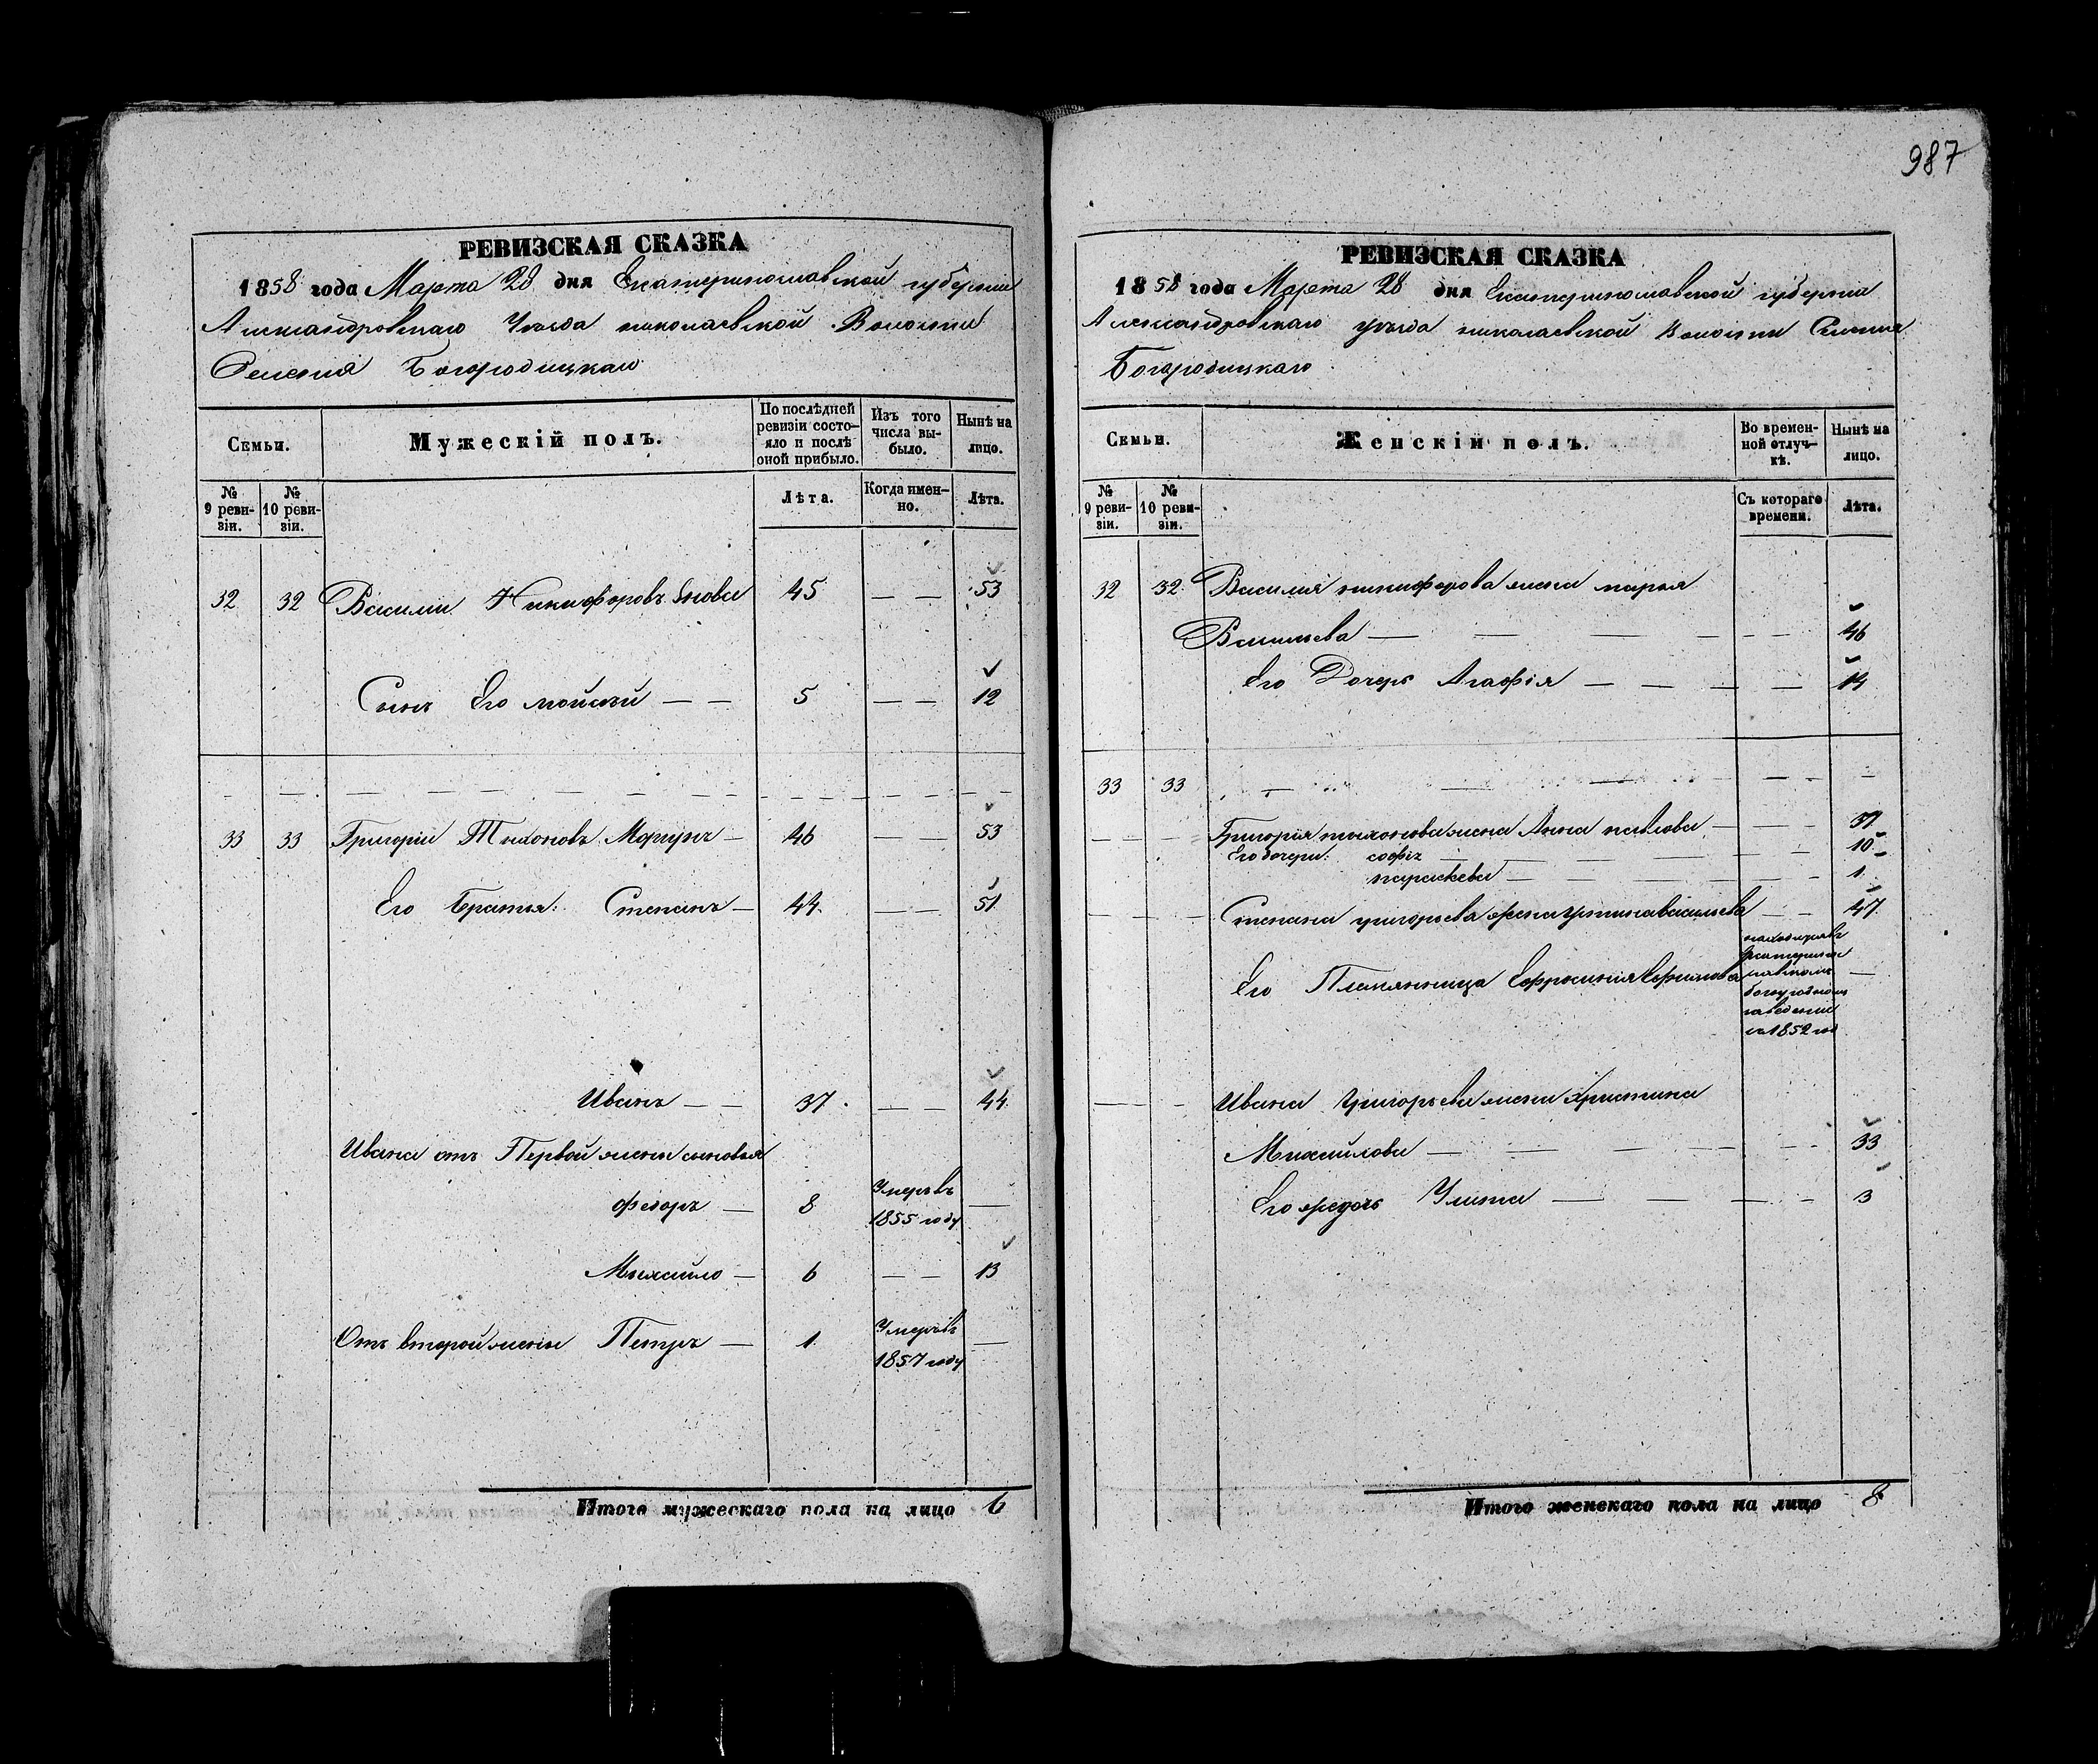 987
РЕВИЗСКАЯ СКАЗКА
1858 года Марта 28 дня Екатеринославской губернии
Александровскаго Уѣзда николаевской Волости
Селения Богородицкаго
Семьи.
Мужескій полъ.
По послѣдней ревизіи состо-
яло и послѣ
оной прибыло.
Изъ того
числа вы-
было.
Нынѣ на
лицо.
№
9 реви-
зіи.
№
10 реви-
зіи.
Лѣта.
Когда имен-
но.
Лѣта.
32 32 Василий Никифоровъ 45 — — 53
Сынъ Его мойсѣй — — 5 — — 12
33 33 Григорий Тихоновъ Моргунъ — 46 — — 53
Его братья: Степанъ — 44 — — 51
Иванъ — — 37 — — 44
Ивана отъ Первой жены сыновья
Федоръ — 8 Умеръ въ
1855 году —
Михайло — 6 — — 13
Отъ второй жены Петръ — 1 Умеръ въ
1857 году —
Итого мужескаго пола на лицо 6
РЕВИЗСКАЯ СКАЗКА
1858 года Марта 28 дня Екатеринославской губернии
Александровскаго уѣзда николаевской Волости Селения
Богородицкаго
Семьи.
Женскій полъ.
Во времен-
ной отлуч-
кѣ.
Нынѣ на
лицо.
№
9 реви-
зіи.
№
10 реви-
зіи.
Съ котораго
времени.
Лѣта.
32 32 Василия никифорова жена марья
Васильева — — — — — — 46
Его Дочерь Агафія — — — — 14
33 33
Григория тихонова жена Анна павлова — — — 37
Его дочери: софія — — — — — 10
параскева — — — — — 1
Степана григорьева жена васильева — — 47
Его Племянница Ефросиния —
находится въ
Екатерино
славскомъ
богоугодномъ
заведении
съ 1852 год
Ивана григорьева жена Христина
Михайлова — — — — — — 33
Его Улита — — — — 3
Итого женскаго пола на лицо 8